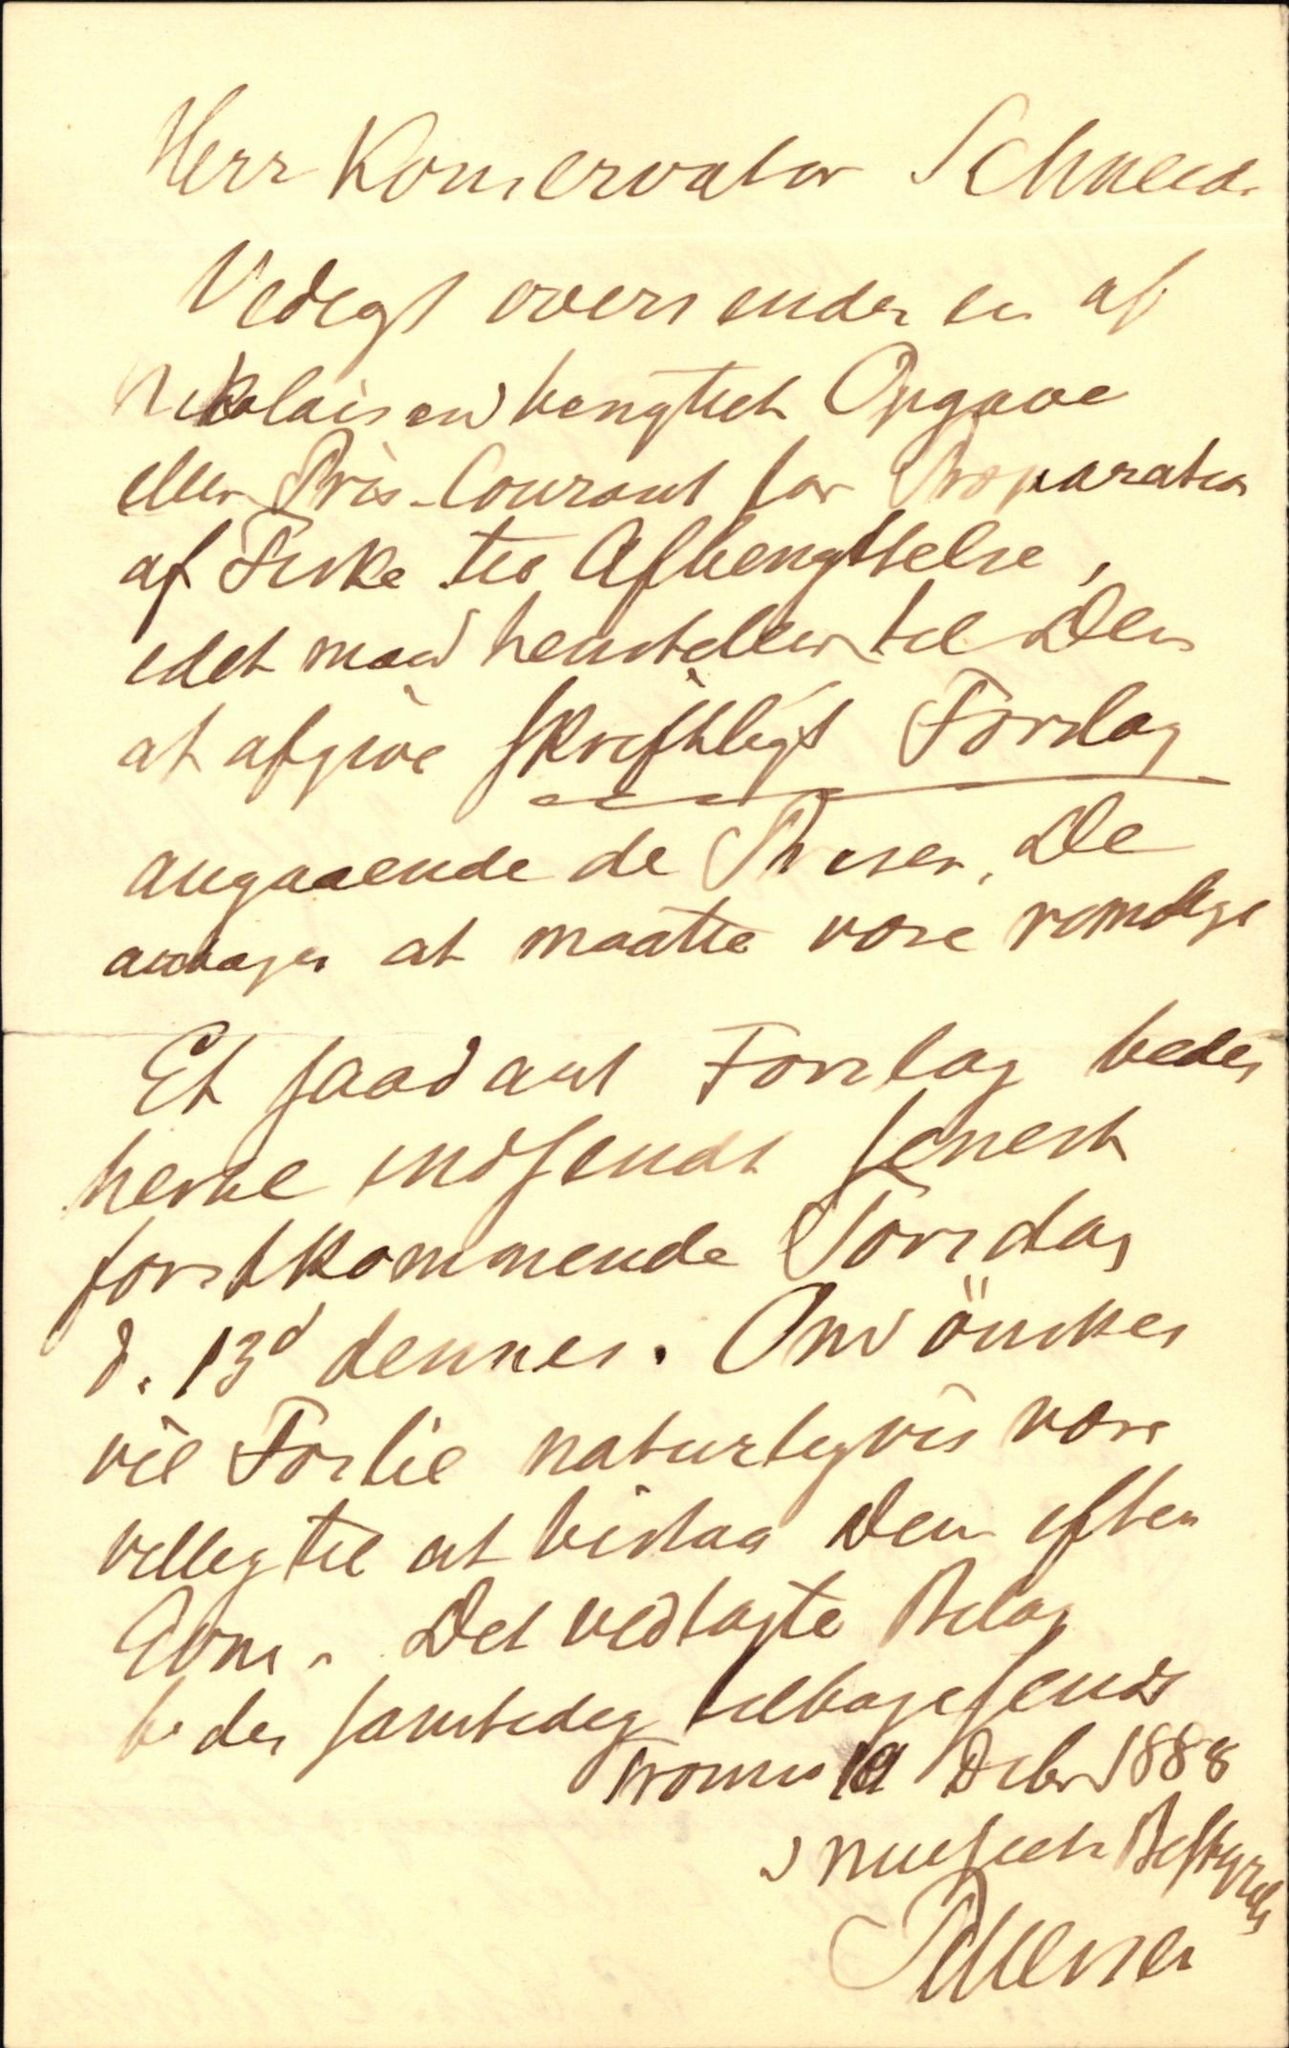 Herr Konservator Schneid.
Vedlagt oversendes en af
Nikolaisen benyttet Opgave
eller Pris-Courant for Præparation
af Fiske til Afbenyttelse,
idet man henstiller til Dem
at afgive skriftligt Forslag
angaaende de Priser, De
antager at maatte være rimelige
Et saadant Forslag bedes
herved indsendt senest
førstkommende Torsdag
d. 13d dennes. Om önskes
vil Foslie naturligvis være
villig til at bistaa Dem efter
Evne. Det vedlagte Bilag
bedes samtidig tilbagesendt
Tromsø Debr 1888
I Museets Bestyrelse